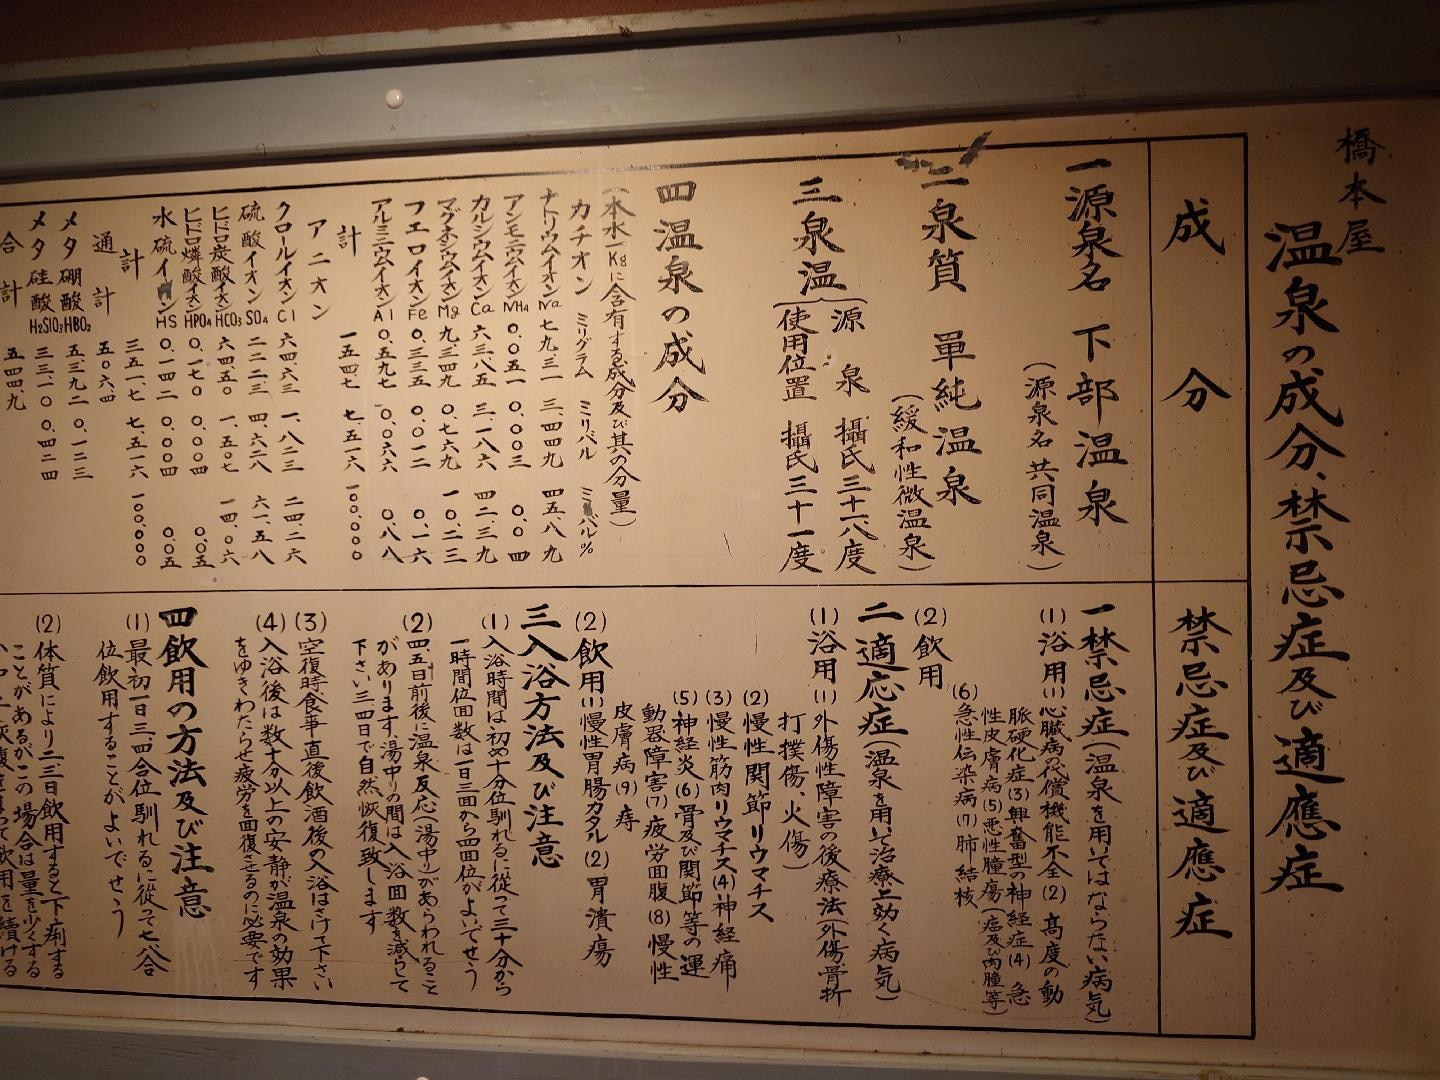 橋本屋
温泉の成分、禁忌症及び適應症
成分
一源泉名 下部温泉
（源泉名 共同温泉）
二泉質 単純温泉
（緩和性微温泉）
三泉温
源泉 攝氏三十八度
使用位置 攝氏三十一度
四温泉の成分
（本水一Kgに含有する成分及び其の分量）
カチオン ミリグラム ミリバル ミリバル%
ナトリウムイオン Na 七九.三一 三.四四九 四五.八九
アンモニウムイオン NH4 0.0五一 0.00三 0.0四
カルシウムイオン Ca 六三.八五 三.一八六 四二.三九
マグネシウムイオン Mg 九.三四九 0.七六九 一0.二三
フエロイオン Fe 0.三三五 0.0一二 0.一六
アルミニウムイオン Al 0.五九七 0.0六六 0.八八
計 一五四.七 七.五一六 一00.000
アニオン
クロールイオン Cl 六四.六三 一.八二三 二四.二六
硫酸イオン SO4 二二二.三 四.六二八 六一.五八
ヒドロ炭酸イオン HCO3 六四.五0 一.五0七 一四.0六
ヒドロ燐酸イオン HPO4 0.一七0 0.00四 0.0五
水硫イオン HS 0.一四二 0.00四 0.0五
計 三五一.七 七.五一六 一00.000
通計 五0六.四
メタ硼酸 HBO2 五.三九二 0.一二三
メタ硅酸 H2SIO3 三三.一0 0.四二四
合計 五四四.九
禁忌症及び適應症
一禁忌症（温泉を用いてはならない病気）
(1)浴用(1)心臓病の代償機能不全(2)高度の動
脈硬化症(3)興奮型の神経症(4)急
性皮膚病(5)悪性腫瘍（癌及び肉腫等）
(6)急性伝染病(7)肺結核
(2)飲用
二適応症（温泉を用いて治療上効く病気）
(1)浴用(1)外傷性障害の後療法（外傷骨折
打撲傷、火傷）
(2)慢性関節リウマチス
(3)慢性筋肉リウマチス(4)神経痛
(5)神経炎(6)骨及び関節等の運
動器障害(7)疲労回腹(8)慢性
皮膚病(9)痔
(2)飲用(1)慢性胃腸カタル(2)胃潰瘍
三入浴方法及び注意
(1)入浴時間は初め十分位馴れるに從って三十分から
一時間位回数は一日三回から四回位がよいでせう
(2)四、五日前後に温泉反応（湯中り）があらわれること
があります、湯中りの間は入浴回数を減らして
下さい三四日で自然恢復致します
(3)空復時、食事直後飲酒後の入浴はさけて下さい
(4)入浴後は数十分以上の安静が温泉の効果
をゆきわたらせ疲労を回復させるのに必要です
四飲用の方法及び注意
(1)最初一日三四合位馴れるに從って七、八合
位飲用することがよいでせう
(2)体質により二三日飲用すると下痢する
ことがあるがこの場合は量を少くする